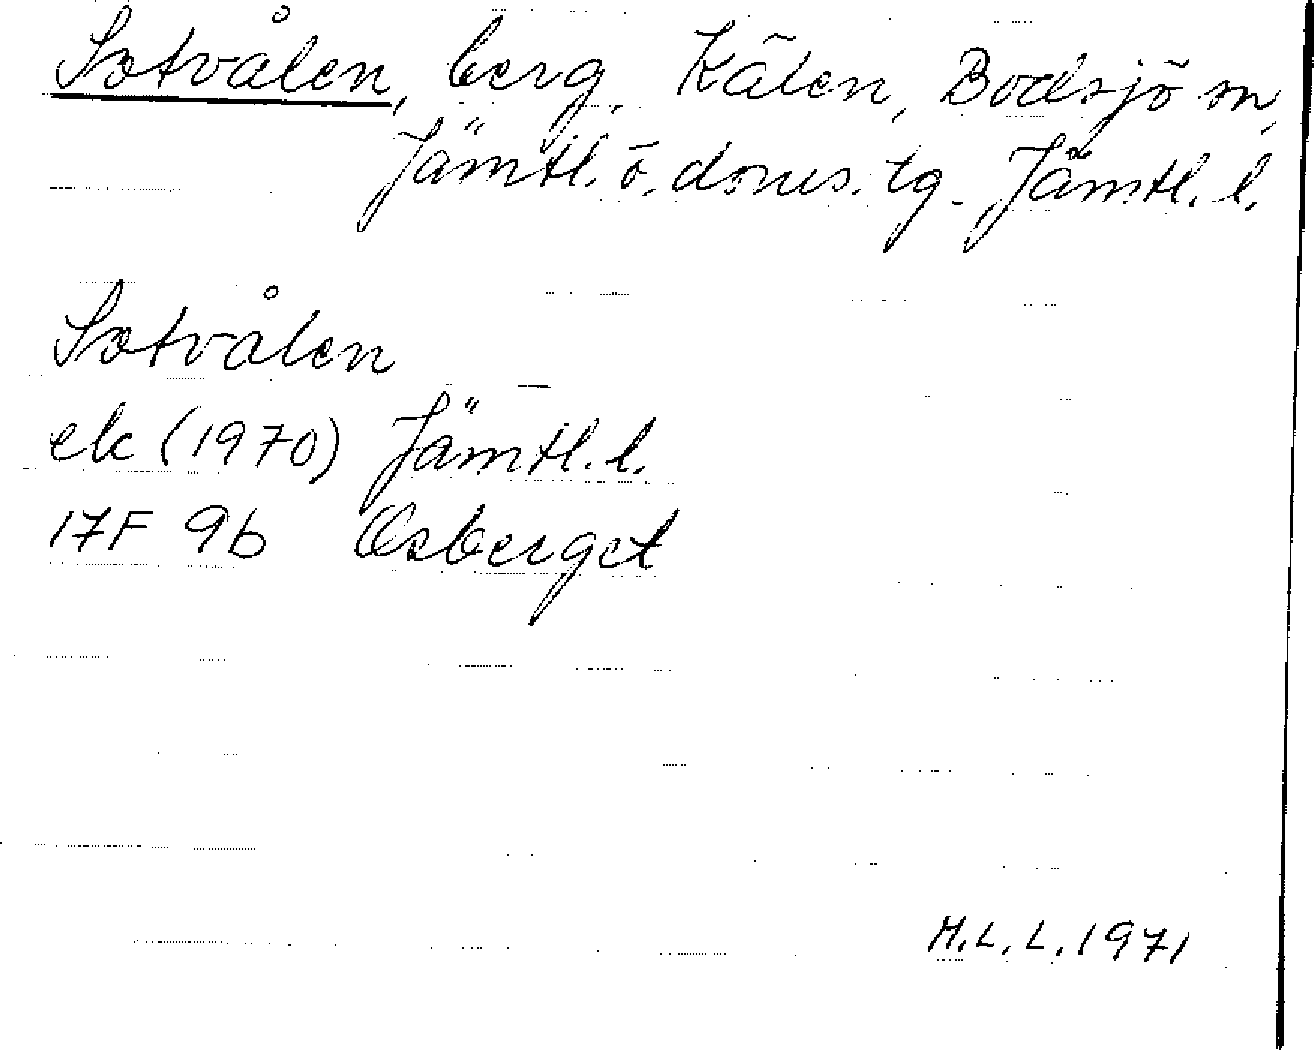 Sotvålen, berg, Kälen, Bodsjö sn,
Jämtl. ö. doms. tg. Jämtl. l.
Sotvålen
ek (1970) Jämtl. l.
17F 9b Osberget
M.L.L. 1971